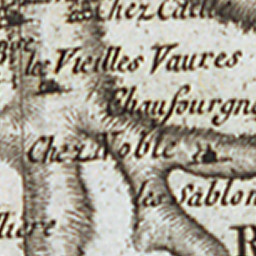 Chez
les Vieilles Vaures
Chaussourgne
Chez Noble
les Sablon
liere
R